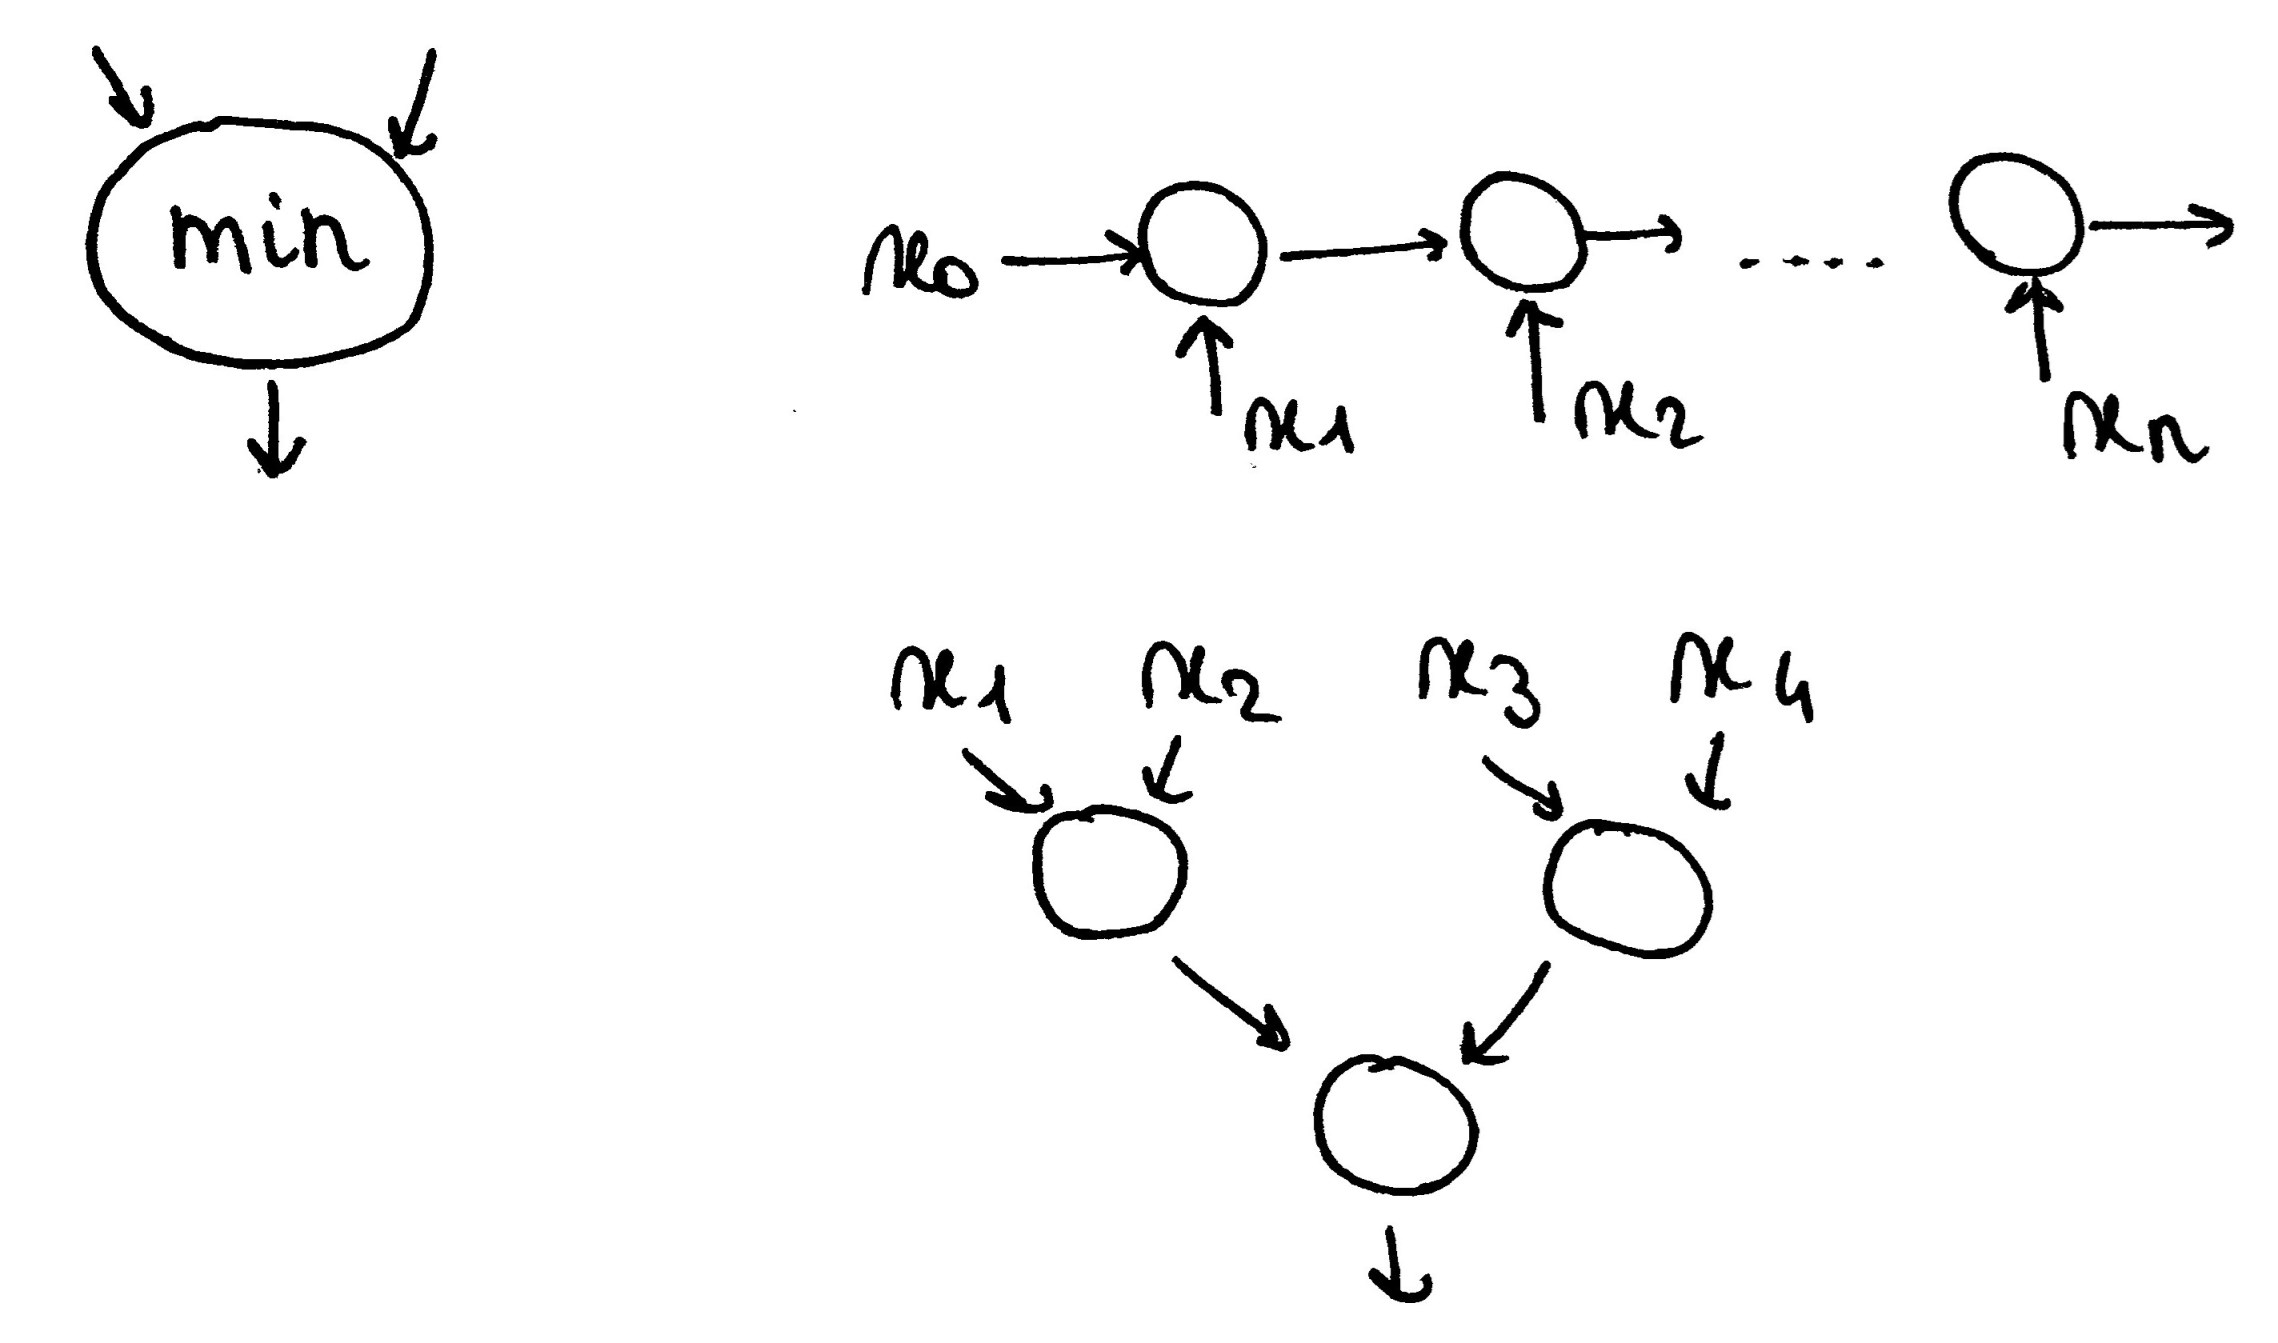 min
x0
x1 x2 xn
x1 x2 x3 x4